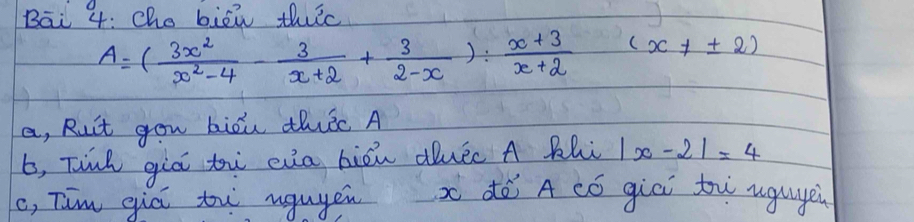 Bài 4: Cho biểu thức
A = ( \frac{3x^2}{x^2-4} - \frac{3}{x+2} + \frac{3}{2-x} ) : \frac{x+3}{x+2} (x ≠ ± 2)
a, Rút gọn biểu thức A
b, Tính giá trị của biểu thức A khi |x - 2| = 4
c, Tìm giá trị nguyên x để A có giá trị nguyên